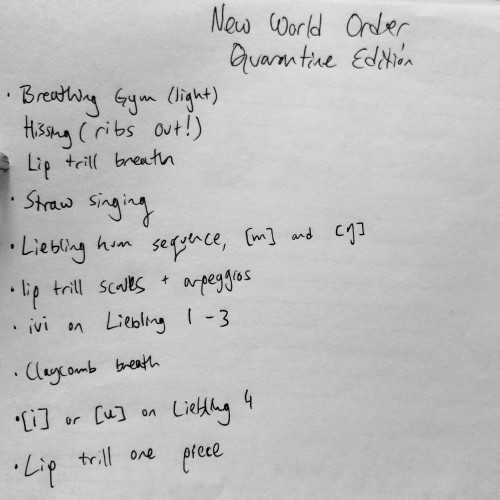 New World Order
Quarantine Edition
• Breathing Gym (light)
Hissing (ribs out!)
Lip trill breath
• Straw singing
• Liebling hum sequence, [m] and [ŋ]
• lip trill scales + arpeggios
• ivi on Liebling 1-3
• Claycomb breath
• [i] or [u] on Liebling 4
• Lip trill one piece